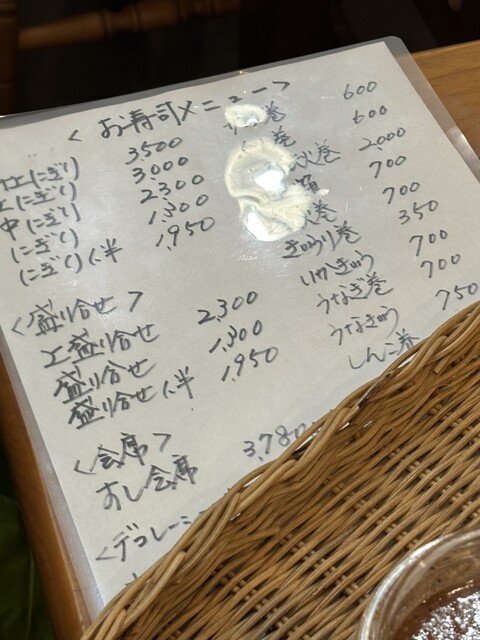 <お寿司メニュー>
上にぎり 3,500
上にぎり 3,000
中にぎり 2,300
にぎり 1,300
にぎり1人半 1,950
<盛り合せ>
上盛り合せ 2,300
盛り合せ 1,300
盛り合せ1人半 1,950
<会席>
すし会席 3,780
<デコレーシ
巻 600
巻 600
巻 2,000
700
巻 700
きゅうり巻 350
いかきゅう 700
うなぎ巻 700
うなきゅう 750
しんこ巻